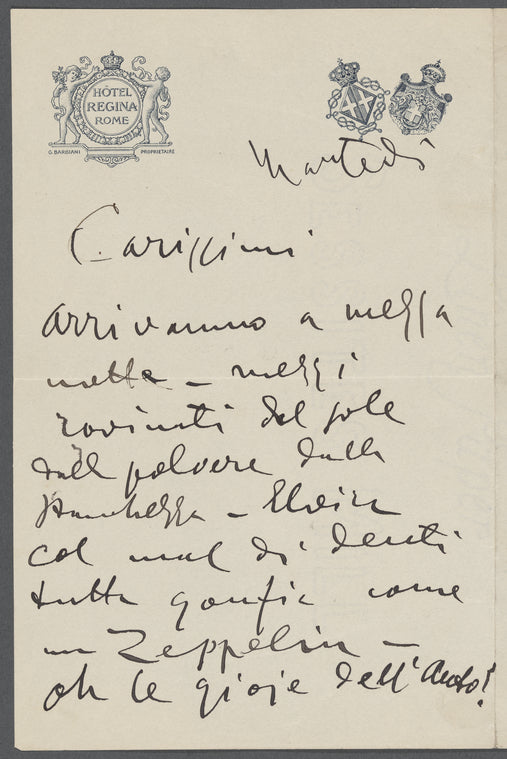 HÔTEL
REGINA
ROME
G. BARBIANI PROPRIETAIRE
Martedì
Carissimi
Arrivammo a mezza
notte – mezzi
rovinati dal sole
dalla polvere dalla
stanchezza – Elvira
col mal di denti
tutta gonfia come
un Zeppelin –
oh le gioje dell'Auto!